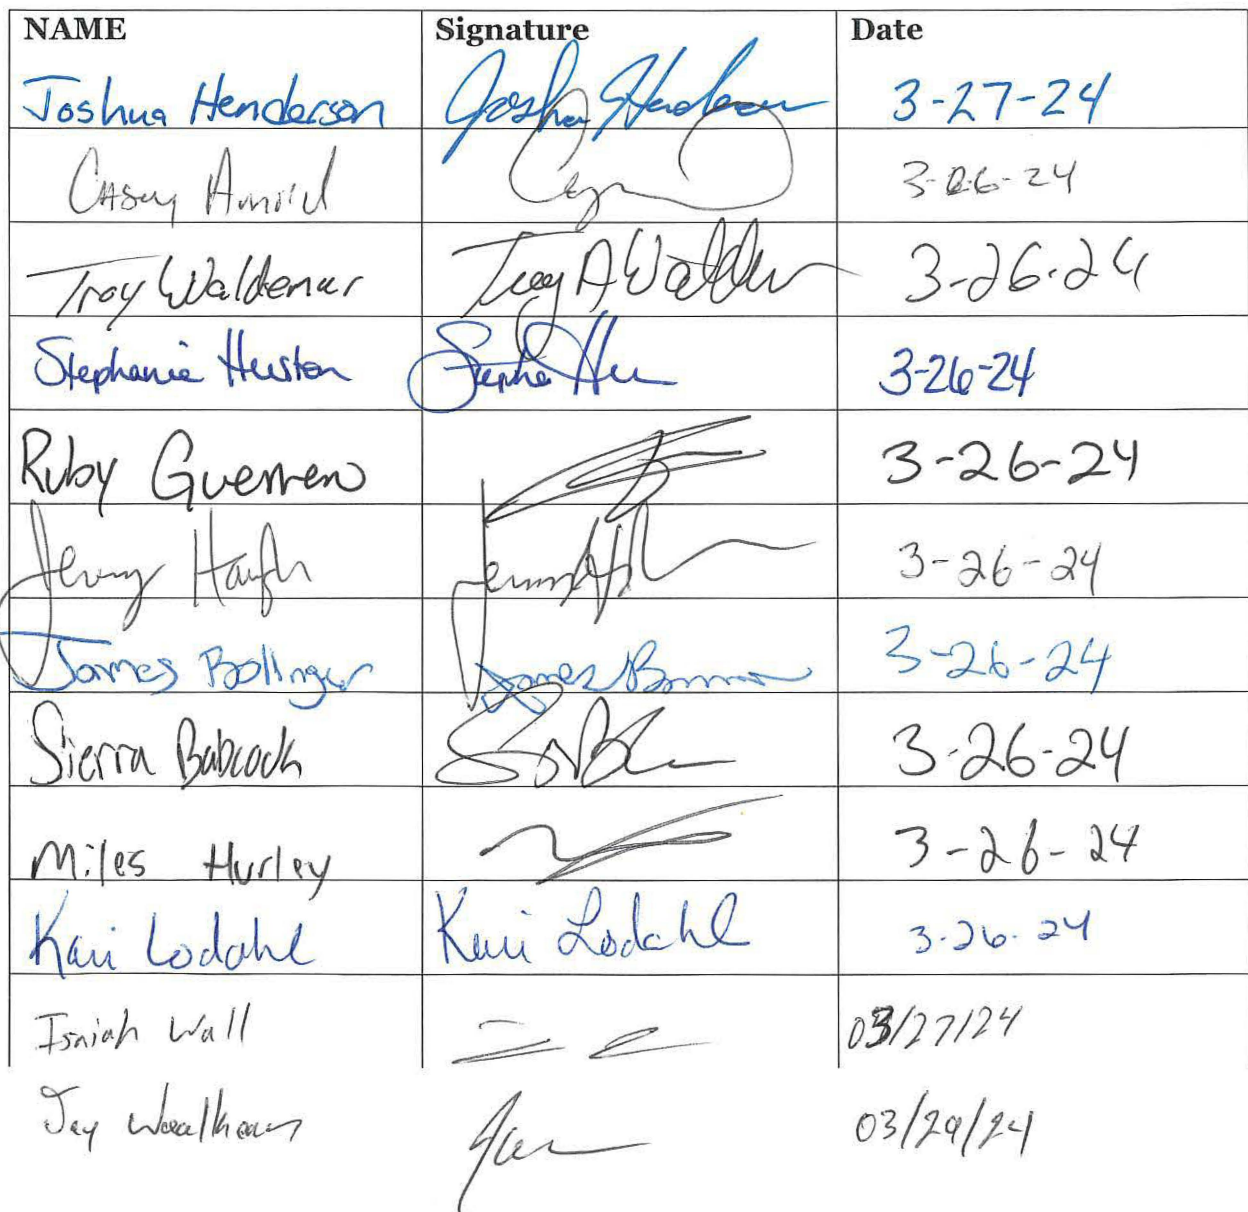 NAME Signature Date
Joshua Henderson Joshua Henderson 3-27-24
Casey Arnold 3-26-24
Troy Waldemar Troy A 3-26-24
Stephanie Huston 3-26-24
Ruby Guerrero 3-26-24
Jenny Haugh 3-26-24
James Bollinger James 3-26-24
Sierra Babcock 3-26-24
Miles Hurley 3-26-24
Kari Lodahl Kari Lodahl 3-26-24
Isaiah Wall 03/27/24
Jay 03/29/24